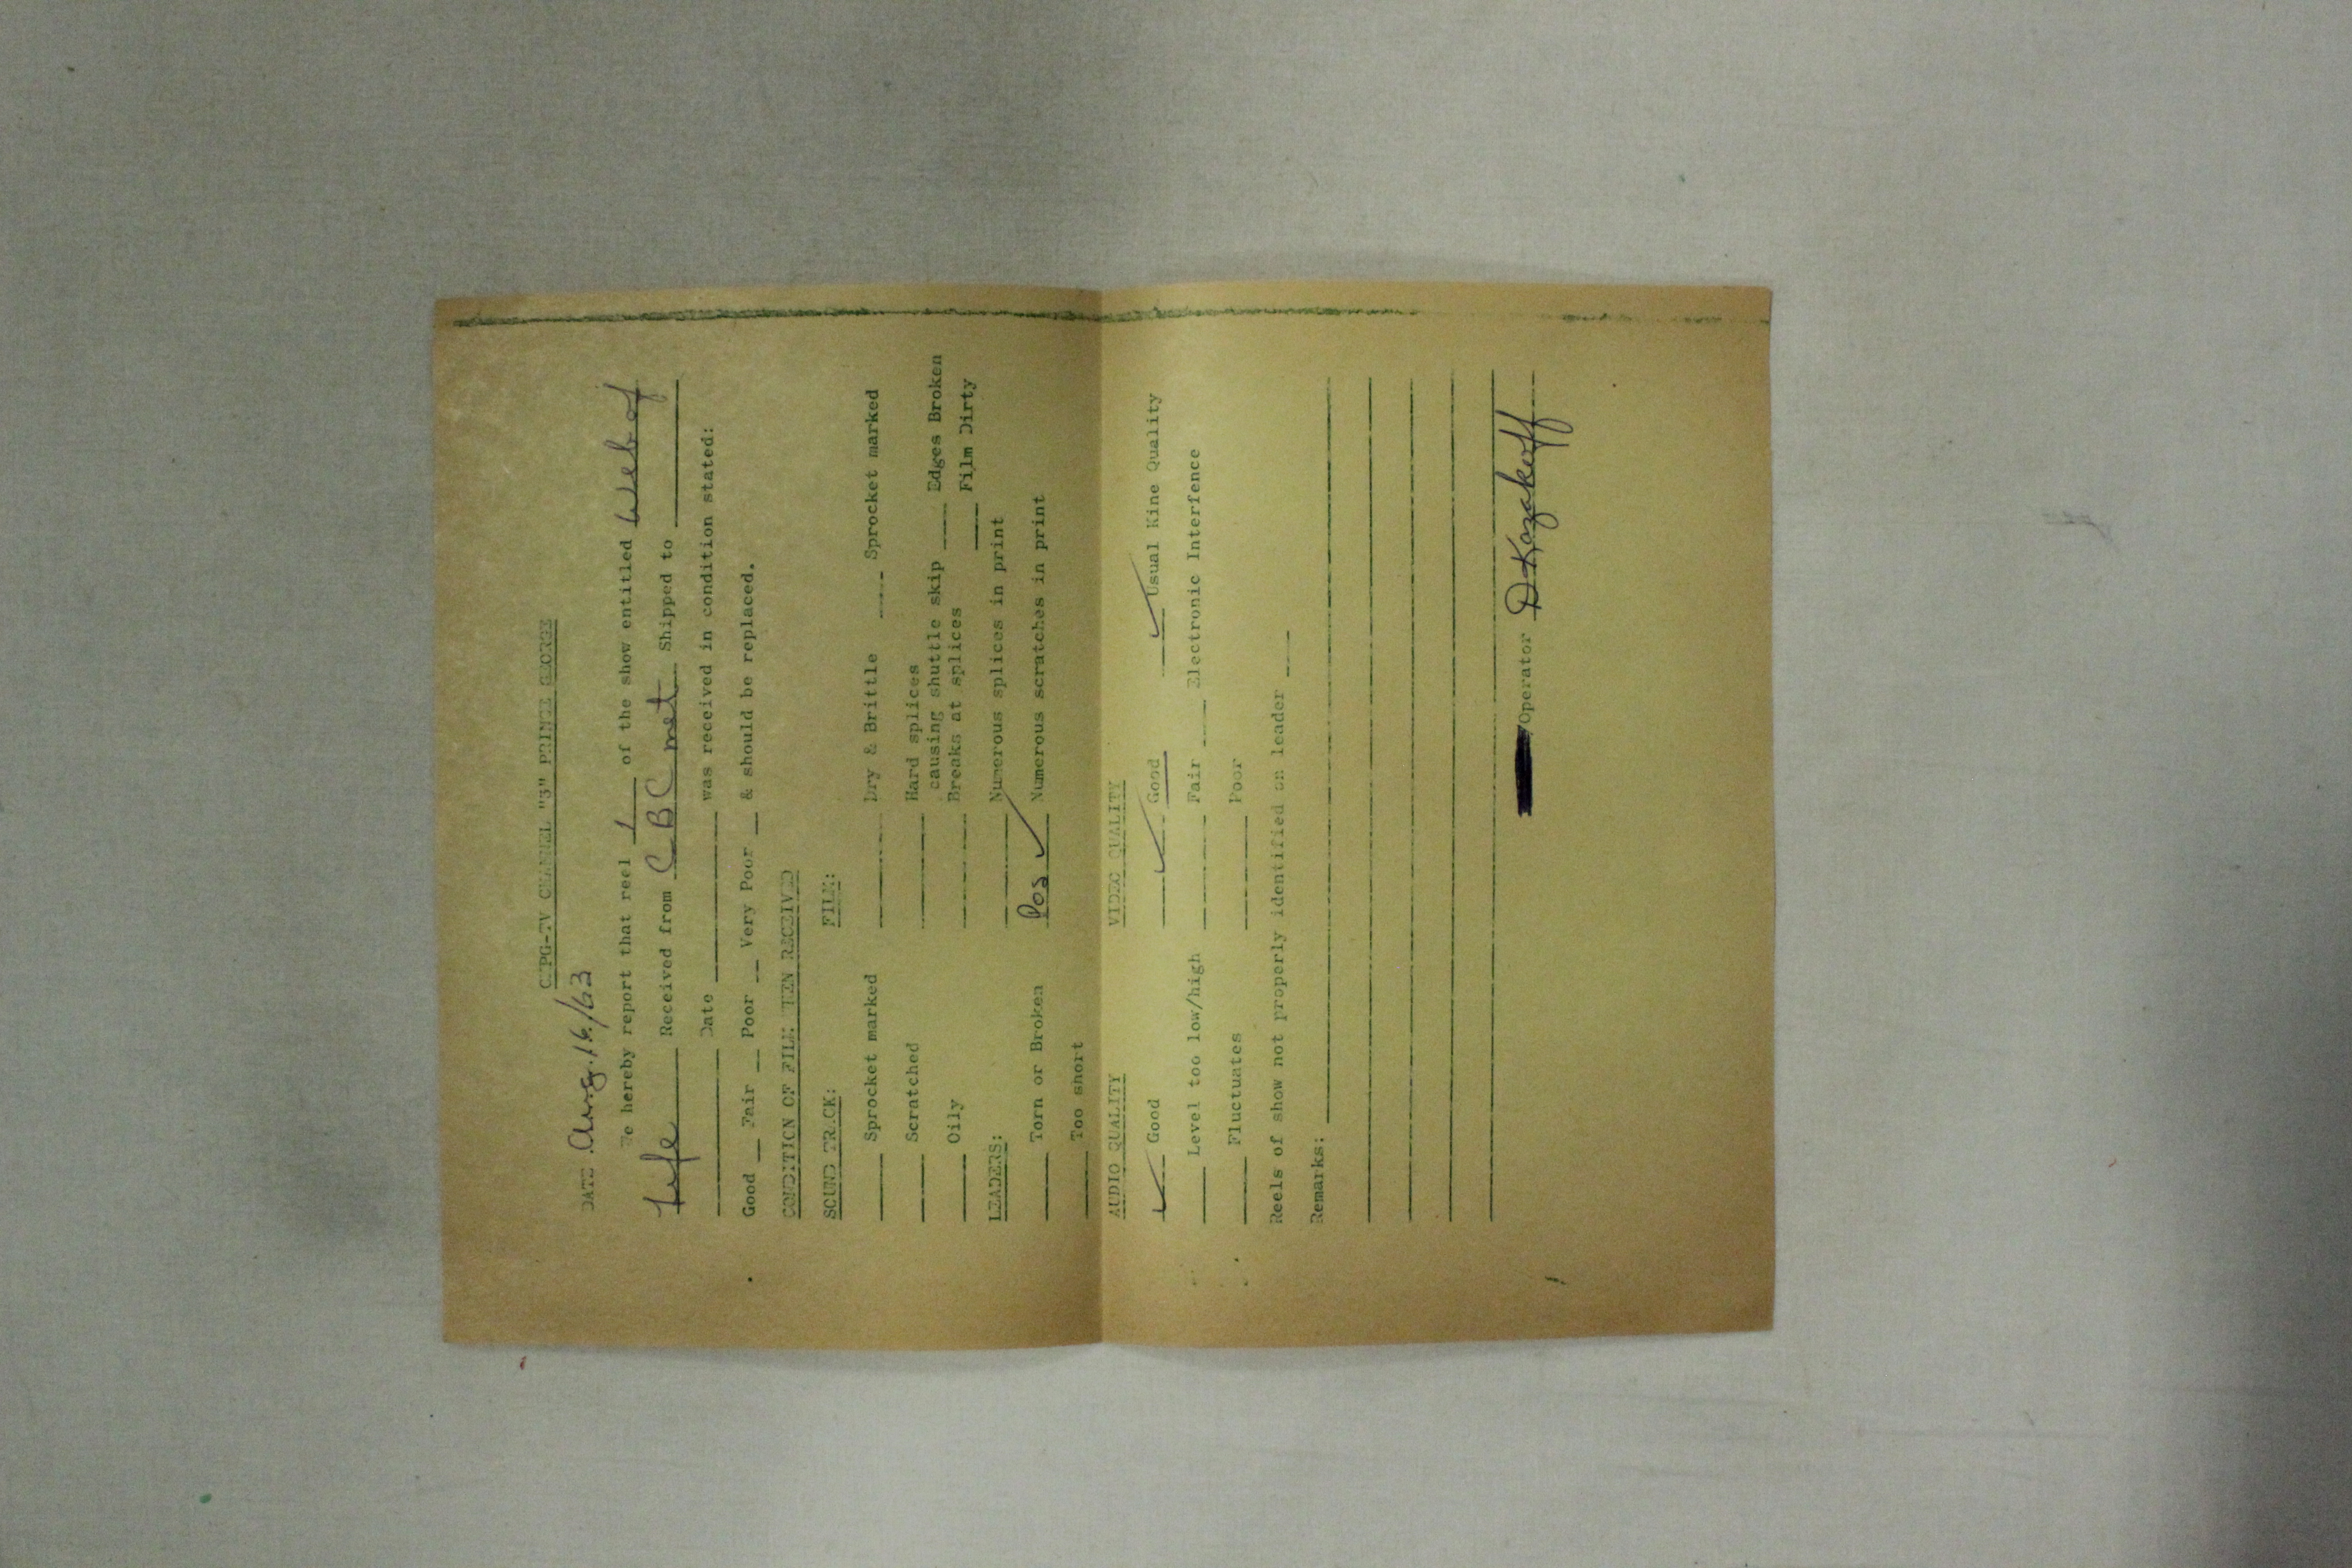 CKPG-TV CHANNEL "3" PRINCE GEORGE
DATE Aug. 16/63
We hereby report that reel 1 of the show entitled Web of
Life Received from CBC met Shipped to
Date was received in condition stated:
Good __ Fair __ Poor __ Very Poor __ & should be replaced.
CONDITION OF FILM WHEN RECEIVED
SOUND TRACK: FILM:
Sprocket marked Dry & Brittle Sprocket marked
Scratched Hard splices
causing shuttle skip Edges Broken
Oily Breaks at splices Film Dirty
LEADERS: Numerous splices in print
Torn or Broken Pos ✓ Numerous scratches in print
Too short
AUDIO QUALITY VIDEO QUALITY
✓ Good ✓ Good ✓ Usual Kine Quality
Level too low/high Fair Electronic Interfence
Fluctuates Poor
Reels of show not properly identified on leader
Remarks:
Operator D Kozakoff